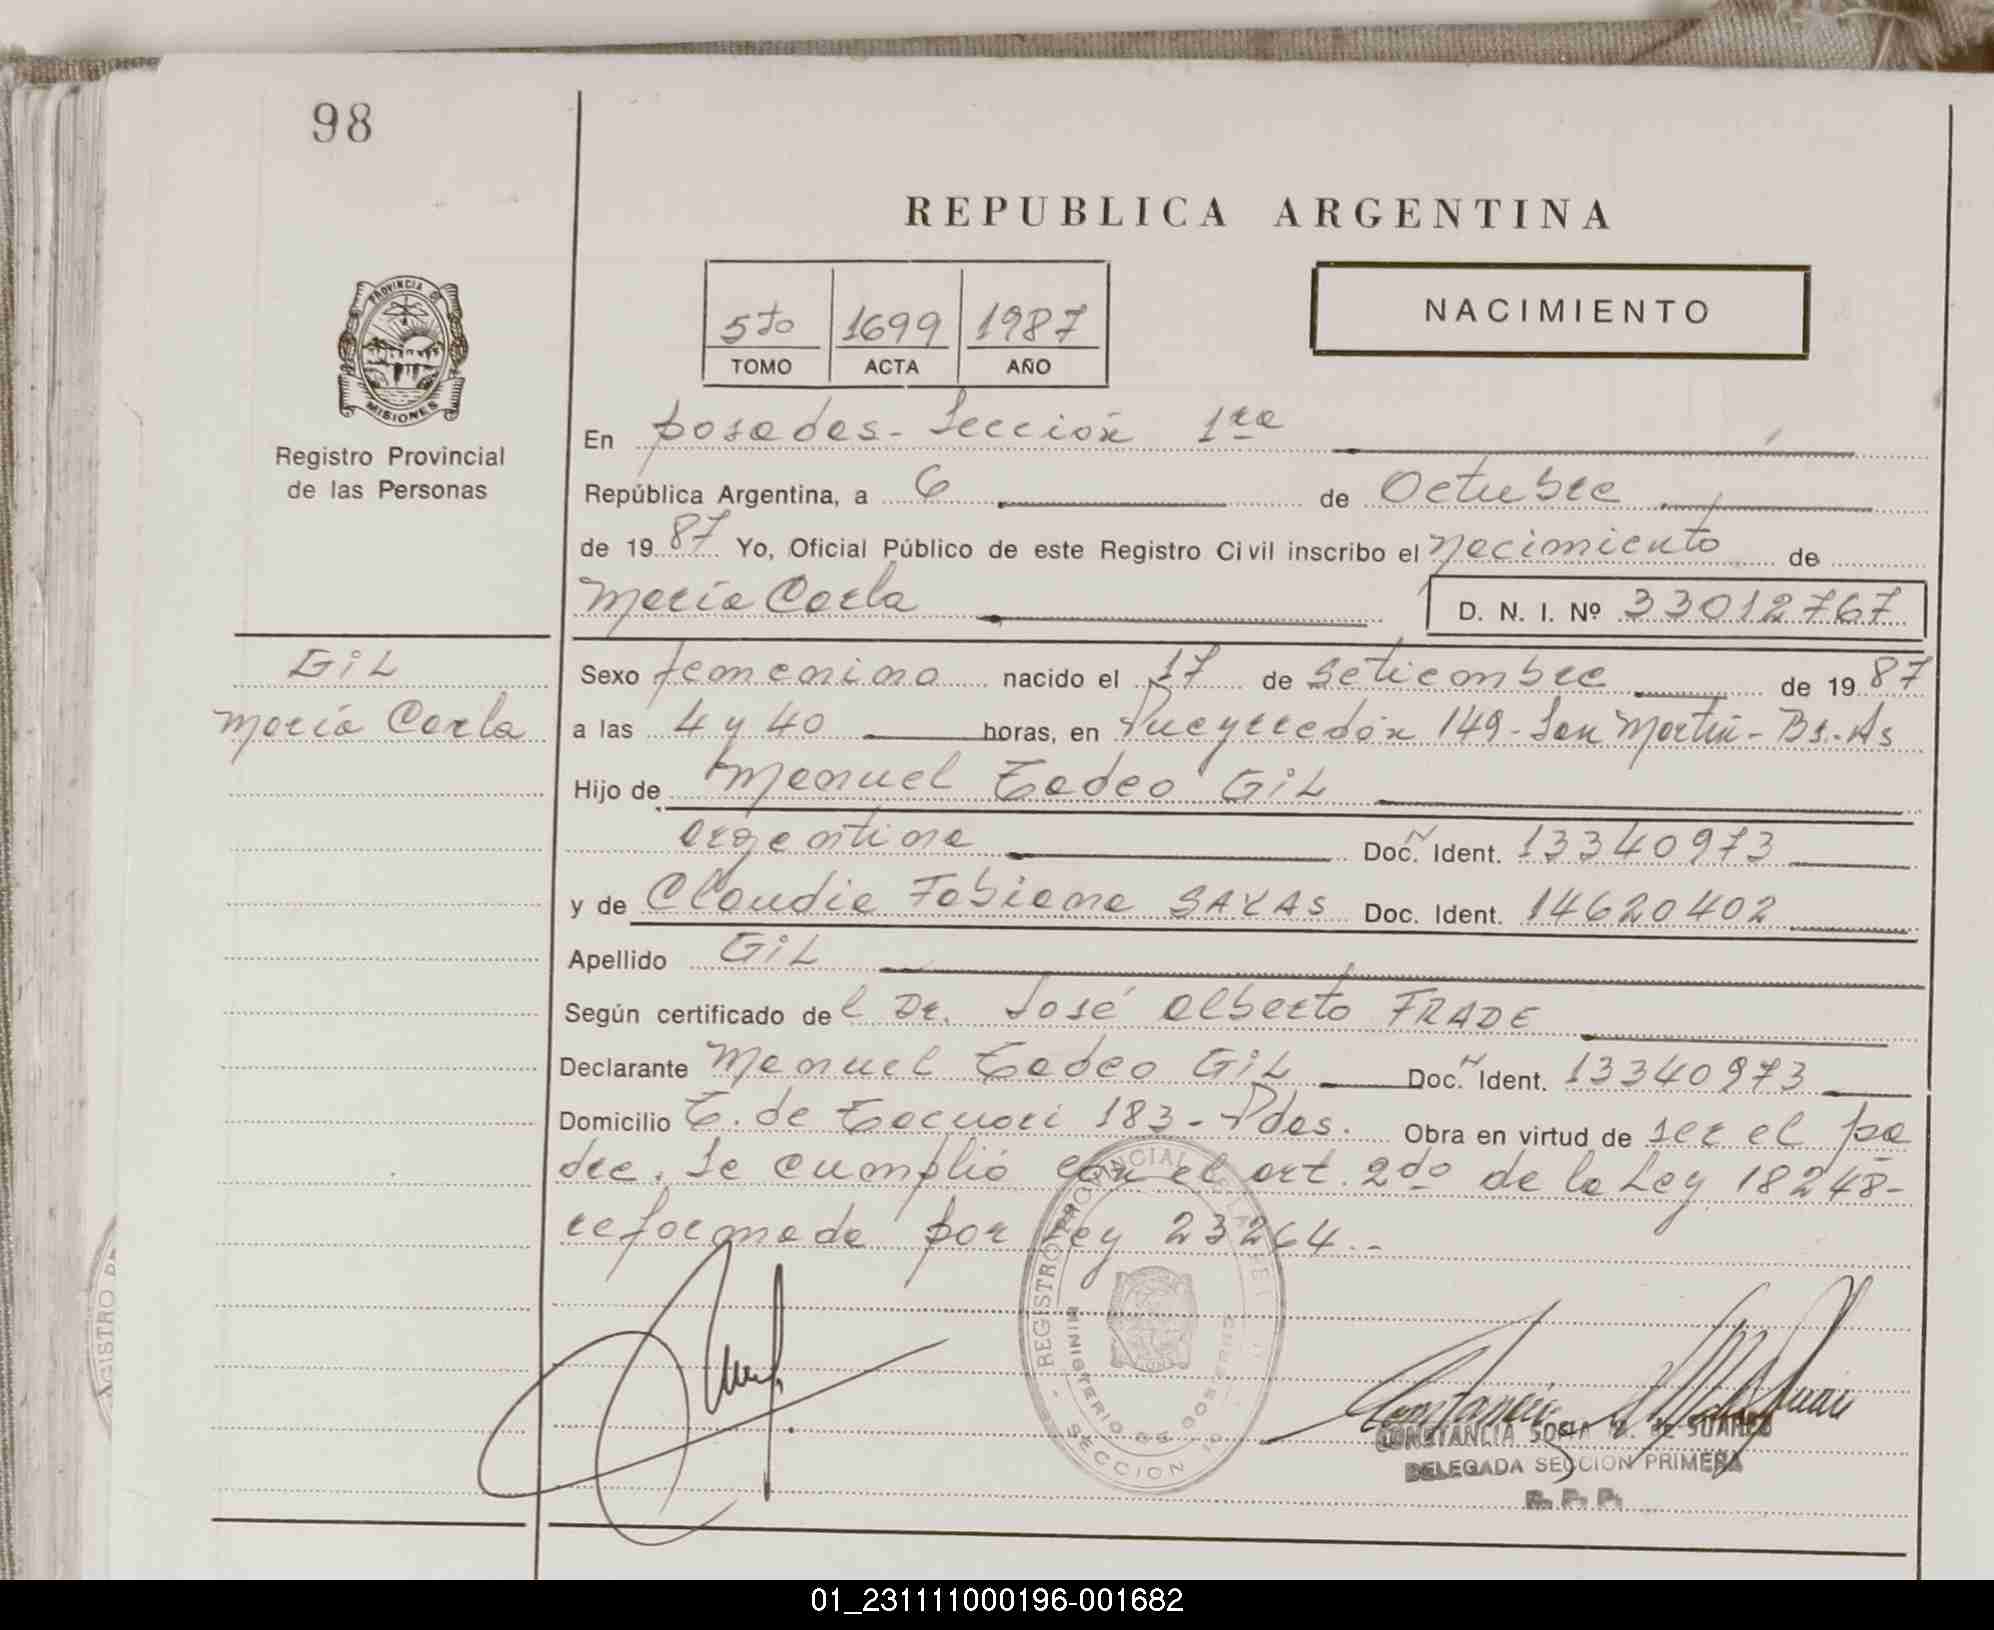 98
REPUBLICA ARGENTINA
5to 1699 1987
TOMO ACTA AÑO
NACIMIENTO
PROVINCIA DE
MISIONES
Registro Provincial
de las Personas
En posadas - Sección 1ra
República Argentina, a 6 de Octubre
de 1987 Yo, Oficial Público de este Registro Civil inscribo el nacimiento de
María Carla D. N. I. Nº 33012767
GiL
María Carla
Sexo femenino nacido el 17 de Setiembre de 1987
a las 4 y 40 horas, en Pueyrredón 149 - San Martín - Bs. As
Hijo de Manuel Tadeo GiL
argentina Doc. Ident. 13340973
y de Claudia Fabiana Doc. Ident. 14620402
Apellido GiL
Según certificado del Dr. José Alberto FRADE
Declarante Manuel Tadeo GiL Doc. Ident. 13340973
Domicilio T. de Tacuari 183 - Pdas. Obra en virtud de ser el pa
dre. Se cumplió con el art. 2do de la Ley 18248-
reformada por Ley 23264.-
REGISTRO PROVINCIAL DE LAS
MINISTERIO DE GOBIERNO
SECCION 1º
CONSTANCIA SOFIA M. DE SUAREZ
DELEGADA SECCION PRIMERA
R. P. P.
01_231111000196-001682